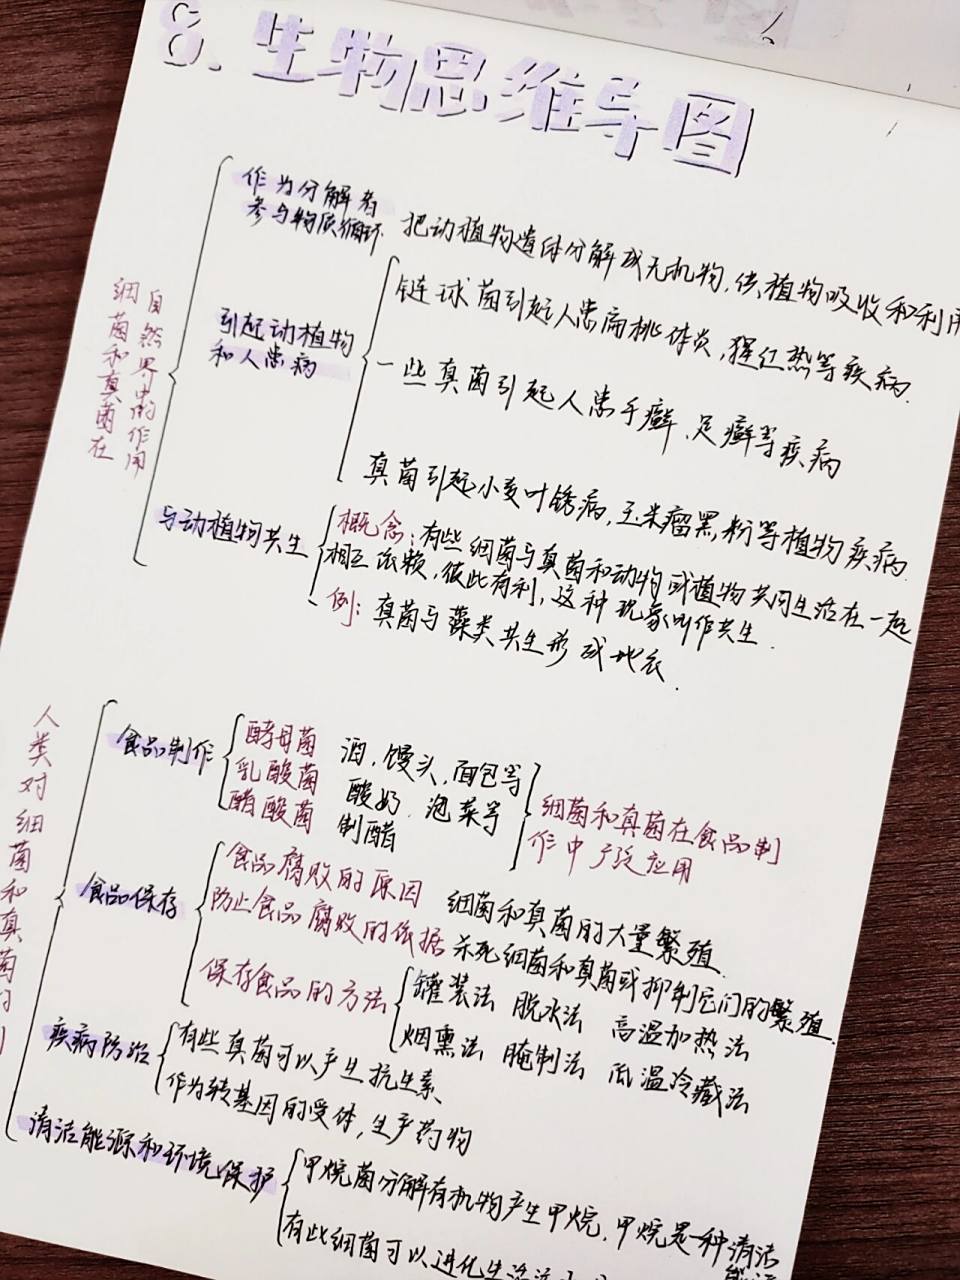 8. 生物思维导图
细菌和真菌在
自然界中的作用
作为分解者
参与物质循环
把动植物遗体分解成无机物,供植物吸收和利用
引起动植物
和人患病
链球菌引起人患扁桃体炎,猩红热等疾病.
一些真菌引起人患手癣、足癣等疾病
真菌引起小麦叶锈病,玉米瘤黑粉等植物疾病.
与动植物共生
概念:有些细菌与真菌和动物或植物共同生活在一起
相互依赖,彼此有利,这种现象叫作共生.
例:真菌与藻类共生形成地衣.
人类对细菌和真菌的利
食品制作
酵母菌 酒,馒头,面包等
乳酸菌 酸奶.泡菜等
醋酸菌 制醋
细菌和真菌在食品制
作中广泛应用
食品保存
食品腐败的原因 细菌和真菌的大量繁殖.
防止食品腐败的依据 杀死细菌和真菌或抑制它们的繁殖.
保存食品的方法
罐装法 脱水法 高温加热法
烟熏法 腌制法 低温冷藏法
疾病防治
有些真菌可以产生抗生素、
作为转基因的受体,生产药物
清洁能源和环境保护
甲烷菌分解有机物产生甲烷,甲烷是一种清洁
能源
有些细菌可以进化生活